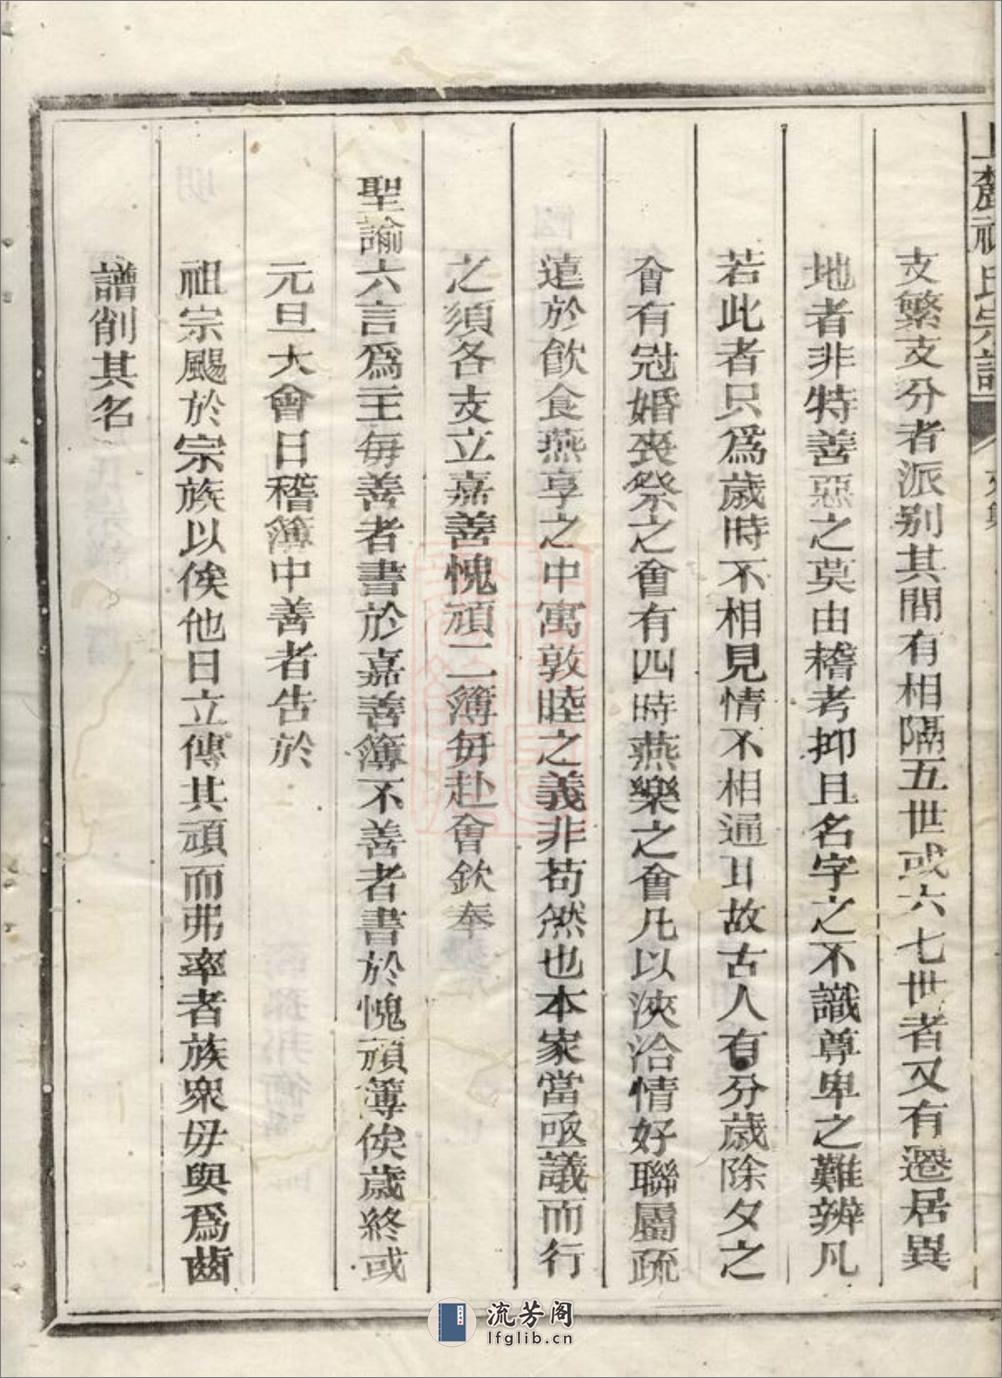 支繁支分者派别其間有相隔五世或六七世者又有遷居異
地者非特善惡之莫由稽考抑且名字之不識尊卑之難辨凡
若此者只爲歲時不相見情不相通耳故古人有分歲除夕之
會有冠婚喪祭之會有四時燕樂之會凡以浹洽情好聯屬疏
遠於飲食燕享之中寓敦睦之義非苟然也本家當亟議而行
之須各支立嘉善愧頑二簿每赴會欽奉
聖諭六言爲主每善者書於嘉善簿不善者書於愧頑簿俟歲終或
元旦大會日稽簿中善者告於
祖宗颺於宗族以俟他日立傳其頑而弗率者族衆毋與爲齒
譜削其名
氏宗譜
流芳阁
lfglib.cn